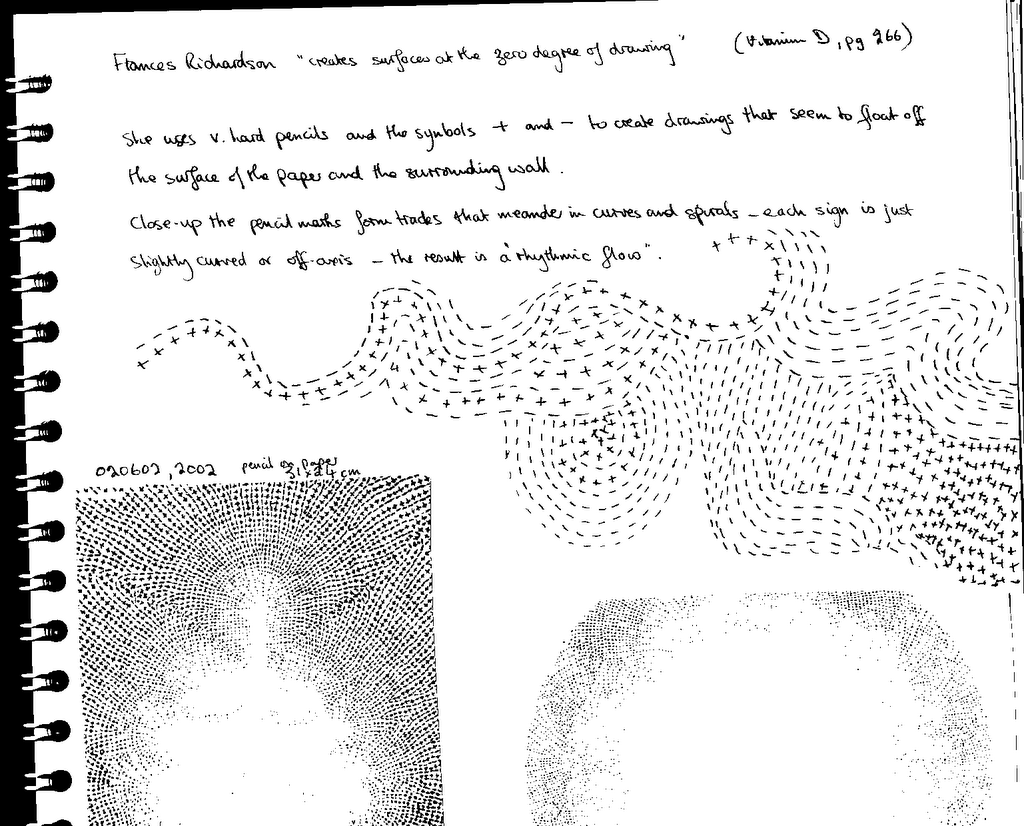 Frances Richardson "creates surfaces at the zero degree of drawing" (Vitamin D, pg 266)
She uses v. hard pencils and the symbols + and - to create drawings that seem to float off
the surface of the paper and the surrounding wall.
Close-up the pencil marks form tracks that meander in curves and spirals - each sign is just
slightly curved or off-axis - the result is a "rhythmic flow".
020602, 2002 pencil on paper
cm